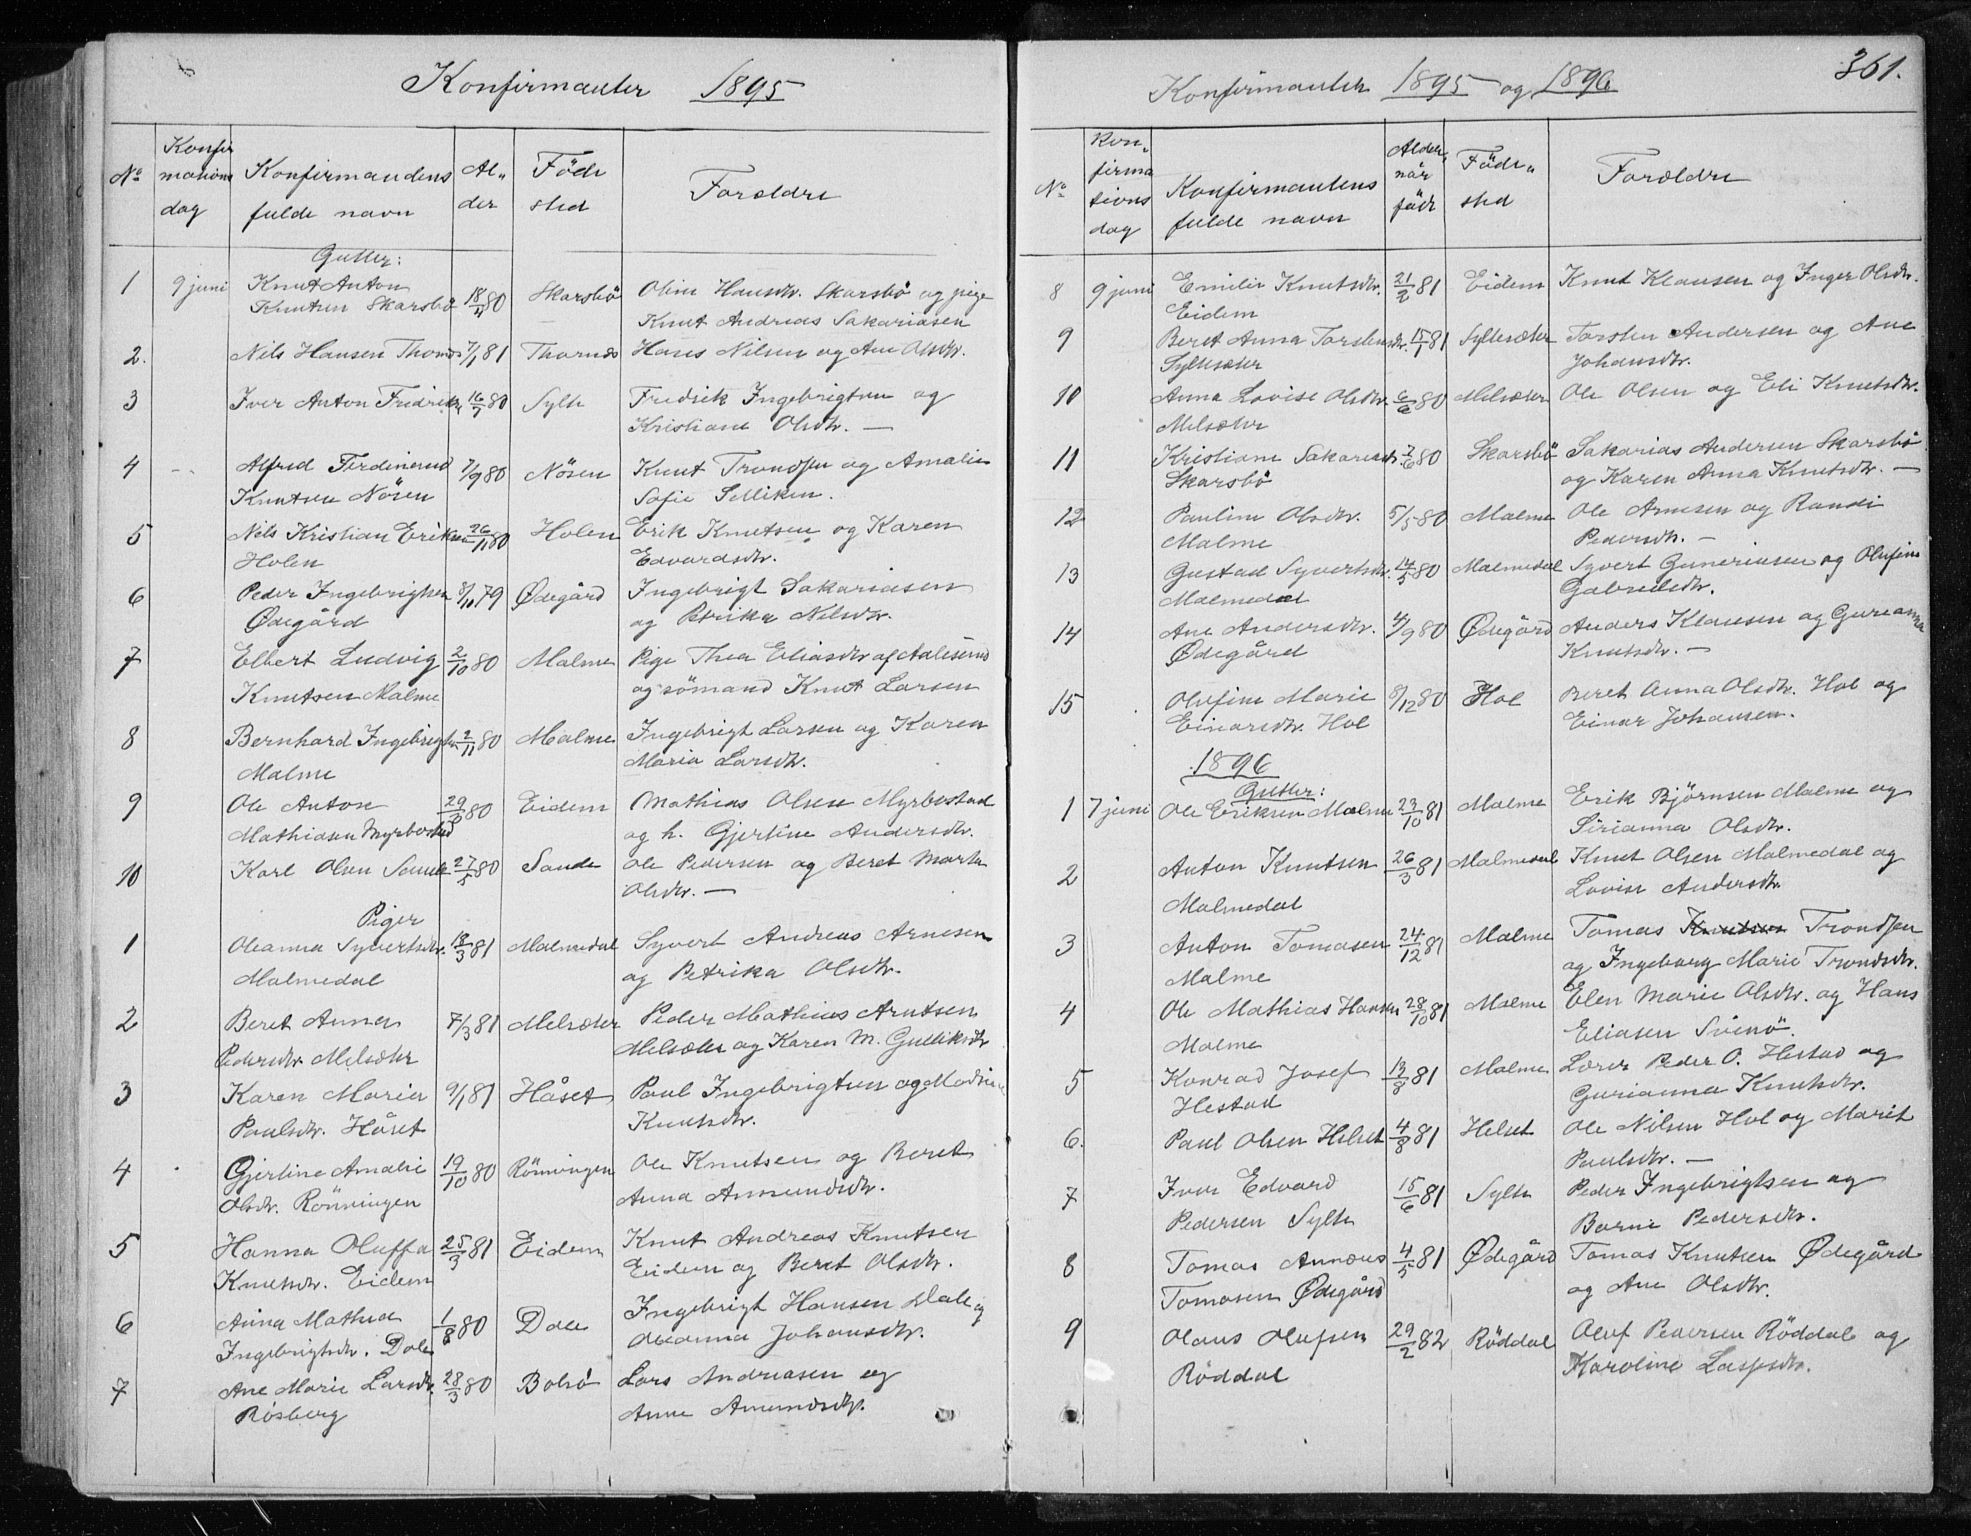 Konfirmanter 1895
No
Konfir
mations
dag
Konfirmandens
fulde navn
Al-
der
Föde
sted
Forældre
Gutter:
1 9 juni Knut Anton 18/4 80 Skarsbö Oline Hansdtr. Skarsbö og pige
Knutsen Skarsbö Knut Andreas Sakariasen
2. Nils Hansen Thornes 7/1 81 Thornes Hans Nilsen og Ane Olsdtr.
3 Iver Anton Fredriksen 16/7 80 Sylte Fredrik Ingebrigtsen og
Kristiane Olsdtr. —
4 Alfred Ferdinand 7/9 80 Nösen Knut Trondsen og Amalie
Knutsen Nösen Sofie Selliken.
5 Nils Kristian Eriksen 26/11 80 Holen Erik Knutsen og Karen
Holen Edvardsdtr.
6 Peder Ingebrigtsen 8/10 79 Ødegård Ingebrigt Sakariasen
Ødegård og Petrika Nilsdtr.
7 Elbert Ludvig 2/10 80 Malme Pige Thea Eliasdtr af Aalesund
Knutsen Malme og sömand Knut Larsen
8 Bernhard Ingebrigtsen 2/11 80 Malme Ingebrigt Larsen og Karen
Malme Maria Larsdtr.
9 Ole Anton 29/6 80 Eidem Mathias Olsen Myrbostad
Mathiasen Myrbostad og h. Gjertine Andersdtr.
10 Karl Olsen Sande 27/5 80 Sande Ole Pedersen og Beret Marta
Olsdtr. —
Piger
1 Oleanna Syvertsdtr. 18/3 81 Malmedal Syvert Andreas Arnesen
Malmedal og Petrika Olsdtr.
2 Beret Anna 7/3 81 Melsæter Peder Mathias Arntsen
Pedersdtr. Melsæter Melsæter og Karen M. Gulliksdtr
3 Karen Maria 9/1 81 Håset Paul Ingebrigtsen og Madvine
Paulsdtr. Håset Knutsdtr.
4 Gjertine Amalie 19/10 80 Rönningen Ole Knutsen og Beret
Olsdtr. Rönningen Anna Amundsdtr.
5 Hanna Oluffa 25/3 81 Eidem Knut Andreas Knutsen
Knutsdtr. Eidem Eidem og Beret Olsdtr.
6 Anna Mathea 1/8 80 Dale Ingebrigt Hansen Dale og
Ingebrigtsdtr. Dale Oleanna Johansdtr.
7 Ane Marie Larsdtr. 28/3 80 Bolsö Lars Andreasen og
Rösberg Anne Amundsdtr.
361.
Konfirmanter 1895 og 1896
No
Kon-
firma
tions
dag
Konfirmantens
fulde navn
Alder,
når
född
Föde-
sted
Forældre
8 9 juni Emilie Knutsdtr. 21/2 81 Eidem Knut Klausen og Inger Olsdtr.
Eidem
9 Beret Anna Torstensdtr. 15/1 81 Syltesæter Torsten Andersen og Ane
Syltesæter Johansdtr.
10 Anna Lovise Olsdtr. 6/6 80 Melsæter Ole Olsen og Eli Knutsdtr.
Melsæter
11 Kristiane Sakariasdtr 7/6 80 Skarsbö Sakarias Andersen Skarsbö
Skarsbö og Karen Anna Knutsdtr. —
12 Pauline Olsdtr. 5/5 80 Malme Ole Arnesen og Randi
Malme Pedersdtr. —
13 Gustad Syvertsdtr. 17/5 80 Malmedal Syvert Guneriusen og Olufine
Malmedal Gabrielsdtr.
14 Ane Andersdtr. 4/9 80 Ødegård Anders Klausen og Gurianna
Ødegård Knutsdtr. —
15 Olufine Marie 8/12 80 Hol Beret Anna Olsdtr. Hol og
Einarsdtr. Hol Einar Johansen.
1896
Gutter:
1 7 juni Ole Eriksen Malme 23/10 81 Malme Erik Bjørnsen Malme og
Sirianna Olsdtr.
2 Anton Knutsen 26/3 81 Malmedal Knut Olsen Malmedal og
Malmedal Lovise Andersdtr.
3 Anton Tomasen 24/12 81 Malme Tomas Knutsen Trondsen
Malme og Ingeborg Marie Trondsdtr.
4 Ole Mathias Hansen 28/10 81 Malme Elen Marie Olsdtr. og Hans
Malme Eliasen Svinö.
5 Konrad Josef 13/8 81 Malme Lærer Peder O. Hestad og
Hestad Gurianna Knutsdtr.
6. Paul Olsen Helset 4/8 81 Helset Ole Nilsen Hol og Marit
Paulsdtr. —
7 Iver Edvard 15/6 81 Sylte Peder Ingebrigtsen og
Pedersen Sylte Barni Pedersdtr.
8 Tomas Annæus 4/5 81 Ødegård Tomas Knutsen Ødegård
Tomasen Ødegård og Ane Olsdtr.
9 Olaus Olufsen 29/2 82 Röddal Oluf Pedersen Röddal og
Röddal Karoline Lassesdtr.